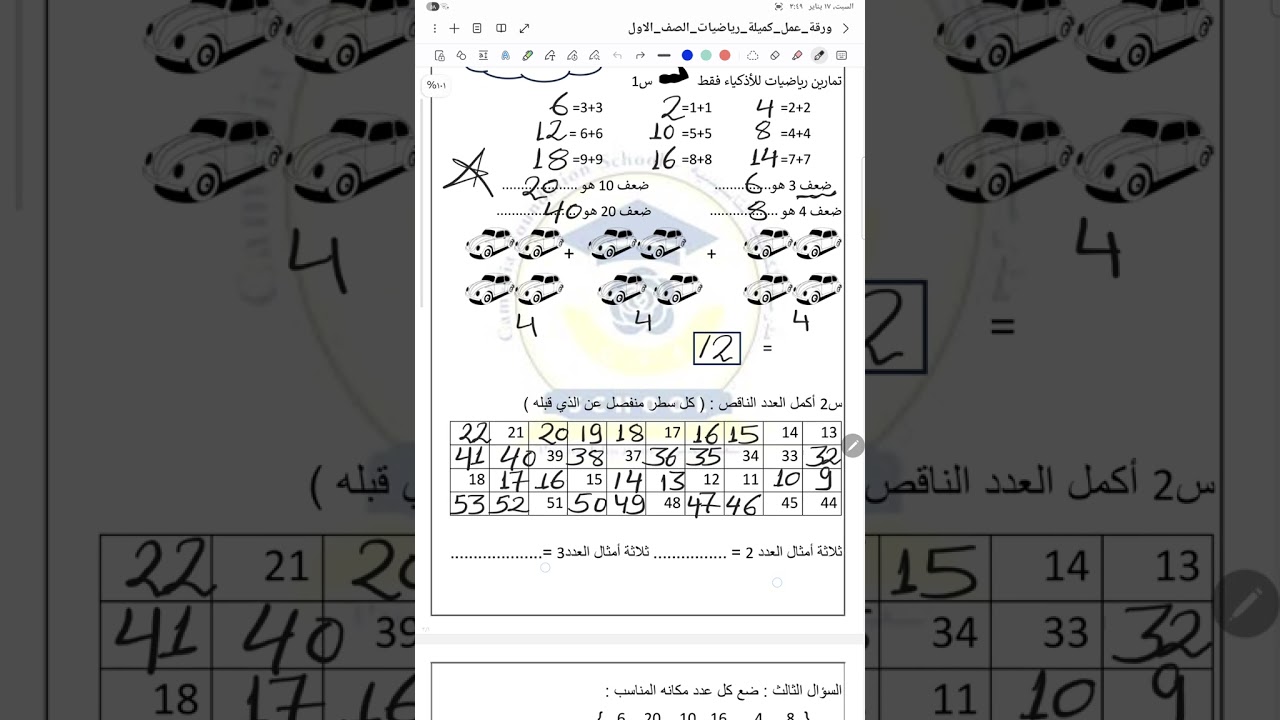 السبت، ١٧ يناير ٣:٤٩
ورقة_عمل_كميلة_رياضيات_الصف_الاول
%١٠١
تمارين رياضيات للأذكياء فقط س1
2+2= 4 1+1= 2 3+3= 6
4+4= 8 5+5= 10 6+6 = 12
7+7= 14 8+8= 16 9+9= 18
ضعف 3 هو ..............6 ضعف 10 هو .................... 20
ضعف 4 هو .................. 8 ضعف 20 هو...................... 40
+ +
4 4 4
= 12
س2 أكمل العدد الناقص : ( كل سطر منفصل عن الذي قبله )
13 14 15 16 17 18 19 20 21 22
32 33 34 35 36 37 38 39 40 41
9 10 11 12 13 14 15 16 17 18
44 45 46 47 48 49 50 51 52 53
ثلاثة أمثال العدد 2 = ................ ثلاثة أمثال العدد3 =....................
السؤال الثالث : ضع كل عدد مكانه المناسب :
{ 8 4 16 10 20 6 }